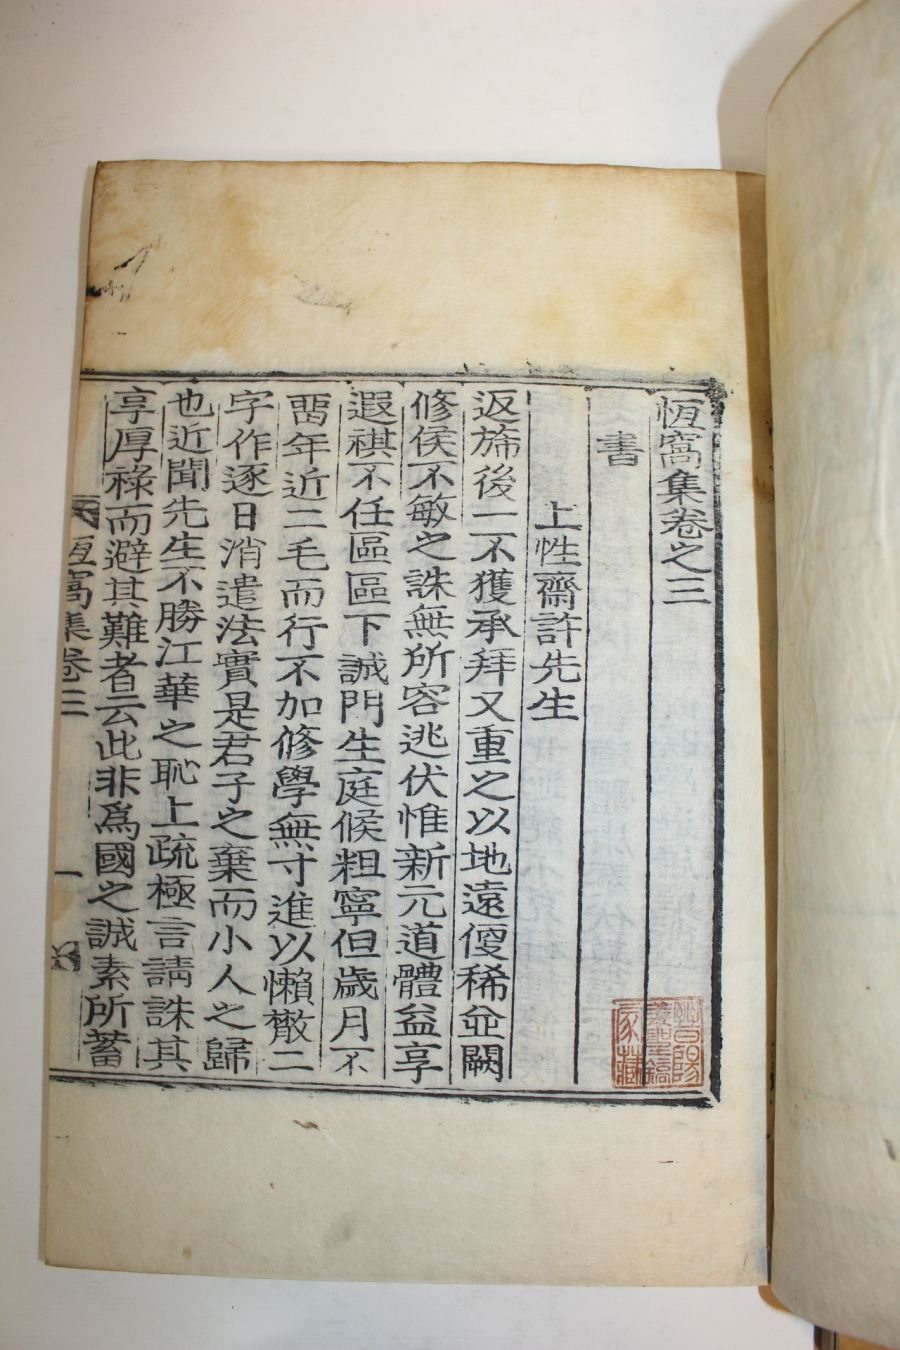 恆窩集卷之三
書
上性齋許先生
返旆後一不獲承拜又重之以地遠便稀並闕
修侯不敏之誅無所容逃伏惟新元道體益享
遐祺不任區區下誠門生庭候粗寧但歲月不
留年近二毛而行不加修學無寸進以懶散二
字作逐日消遣法實是君子之棄而小人之歸
也近聞先生不勝江華之恥上疏極言請誅其
享厚祿而避其難者云此非爲國之誠素所蓄
恆窩集卷三
一